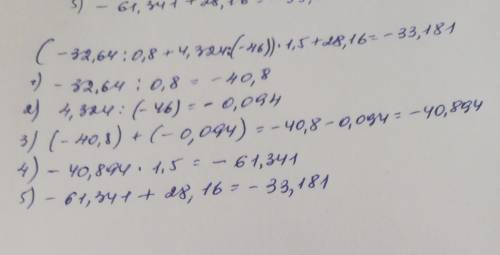 5) - 61,341 + 28,16 =
( -32,64 : 0,8 + 4,324:(-46)) · 1,5 + 28,16 = - 33,181
1) - 32,64 : 0,8 = - 40,8
2) 4,324 : (-46) = - 0,094
3) (-40,8) + (-0,094) = -40,8 - 0,094 = - 40,894
4) - 40,894 · 1,5 = - 61,341
5) - 61,341 + 28,16 = - 33,181